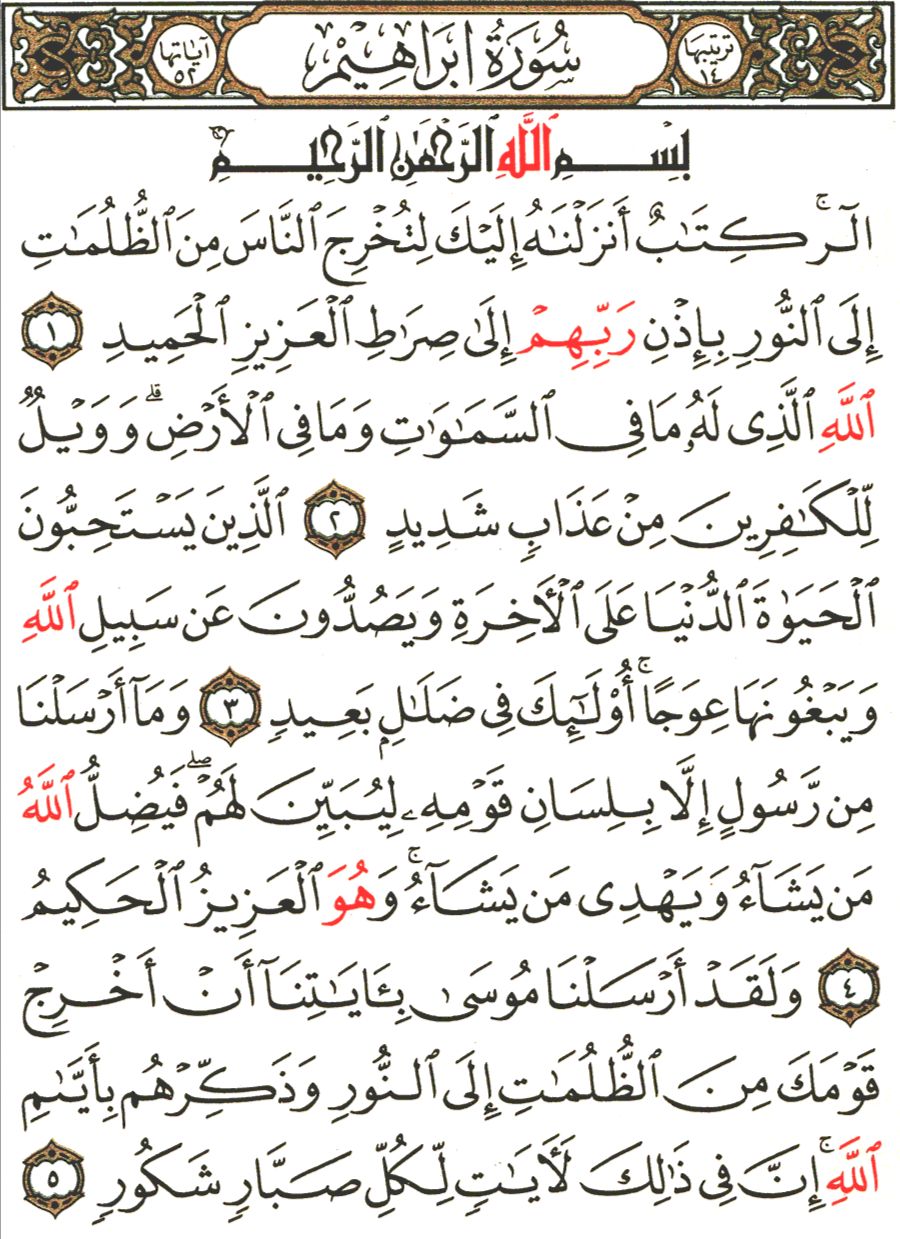 ترتيبها ١٤ سُورَةُ إبْرَاهِيْمِ آياتها ٥٢
بِسْمِ ٱللَّهِ ٱلرَّحْمَٰنِ ٱلرَّحِيمِ
الٓرۚ كِتَٰبٌ أَنزَلْنَٰهُ إِلَيْكَ لِتُخْرِجَ ٱلنَّاسَ مِنَ ٱلظُّلُمَٰتِ
إِلَى ٱلنُّورِ بِإِذْنِ رَبِّهِمْ إِلَىٰ صِرَٰطِ ٱلْعَزِيزِ ٱلْحَمِيدِ ١
ٱللَّهِ ٱلَّذِى لَهُۥ مَا فِى ٱلسَّمَٰوَٰتِ وَمَا فِى ٱلْأَرْضِۗ وَوَيْلٌ
لِّلْكَٰفِرِينَ مِنْ عَذَابٍ شَدِيدٍ ٢ ٱلَّذِينَ يَسْتَحِبُّونَ
ٱلْحَيَوٰةَ ٱلدُّنْيَا عَلَى ٱلْأَخِرَةِ وَيَصُدُّونَ عَن سَبِيلِ ٱللَّهِ
وَيَبْغُونَهَا عِوَجًاۚ أُو۟لَٰٓئِكَ فِى ضَلَٰلٍۭ بَعِيدٍ ٣ وَمَآ أَرْسَلْنَا
مِن رَّسُولٍ إِلَّا بِلِسَانِ قَوْمِهِۦ لِيُبَيِّنَ لَهُمْۖ فَيُضِلُّ ٱللَّهُ
مَن يَشَآءُ وَيَهْدِى مَن يَشَآءُۚ وَهُوَ ٱلْعَزِيزُ ٱلْحَكِيمُ
٤ وَلَقَدْ أَرْسَلْنَا مُوسَىٰ بِـَٔايَٰتِنَآ أَنْ أَخْرِجْ
قَوْمَكَ مِنَ ٱلظُّلُمَٰتِ إِلَى ٱلنُّورِ وَذَكِّرْهُم بِأَيَّىٰمِ
ٱللَّهِۚ إِنَّ فِى ذَٰلِكَ لَأَيَٰتٍ لِّكُلِّ صَبَّارٍ شَكُورٍ ٥